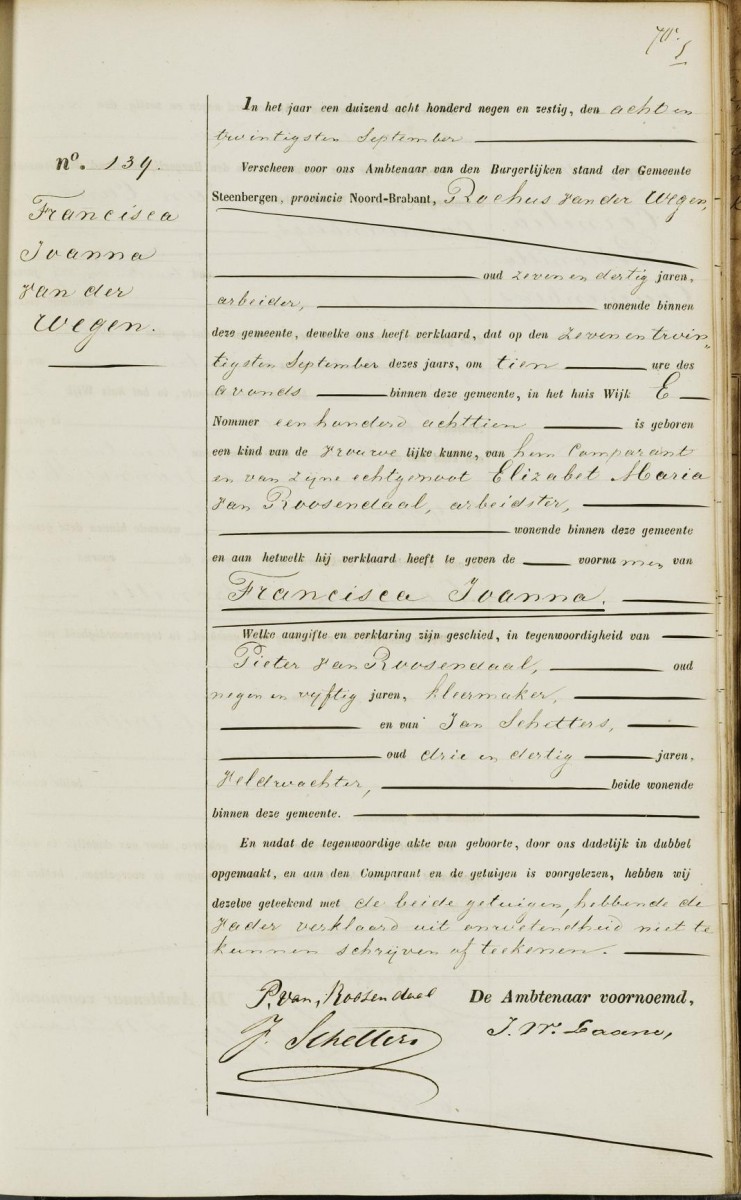 n°. 139.
Francisca
Joanna
van der
Wegen.
In het jaar een duizend acht honderd negen en zestig, den acht en
twintigsten September
Verscheen voor ons Ambtenaar van den Burgerlijken stand der Gemeente
Steenbergen, provincie Noord-Brabant, Rochus van der Wegen,
oud zeven en dertig jaren,
arbeider, wonende binnen
deze gemeente, dewelke ons heeft verklaard, dat op den zeven en twin"
tigsten September dezes jaars, om tien ure des
avonds binnen deze gemeente, in het huis Wijk E
Nommer een honderd achttien is geboren
een kind van de vrouwe lijke kunne, van hem Comparant
en van zijne echtgenoot Elizabet Maria
van Roosendaal, arbeidster,
wonende binnen deze gemeente
en aan hetwelk hij verklaard heeft te geven de voornamen van
Francisca Joanna.
Welke aangifte en verklaring zijn geschied, in tegenwoordigheid van
Pieter van Roosendaal, oud
negen en vyftig jaren, kleermaker,
en van Jan Schetters,
oud drie en dertig jaren,
veldwachter, beide wonende
binnen deze gemeente.
En nadat de tegenwoordige akte van geboorte, door ons dadelijk in dubbel
opgemaakt, en aan den Comparant en de getuigen is voorgelezen, hebben wij
dezelve geteekend met de beide getuigen, hebbende de
vader verklaard uit onwetendheid niet te
kunnen schrijven of teekenen.
P. van Roosendaal De Ambtenaar voornoemd,
J. Schetters J. W. Laane,